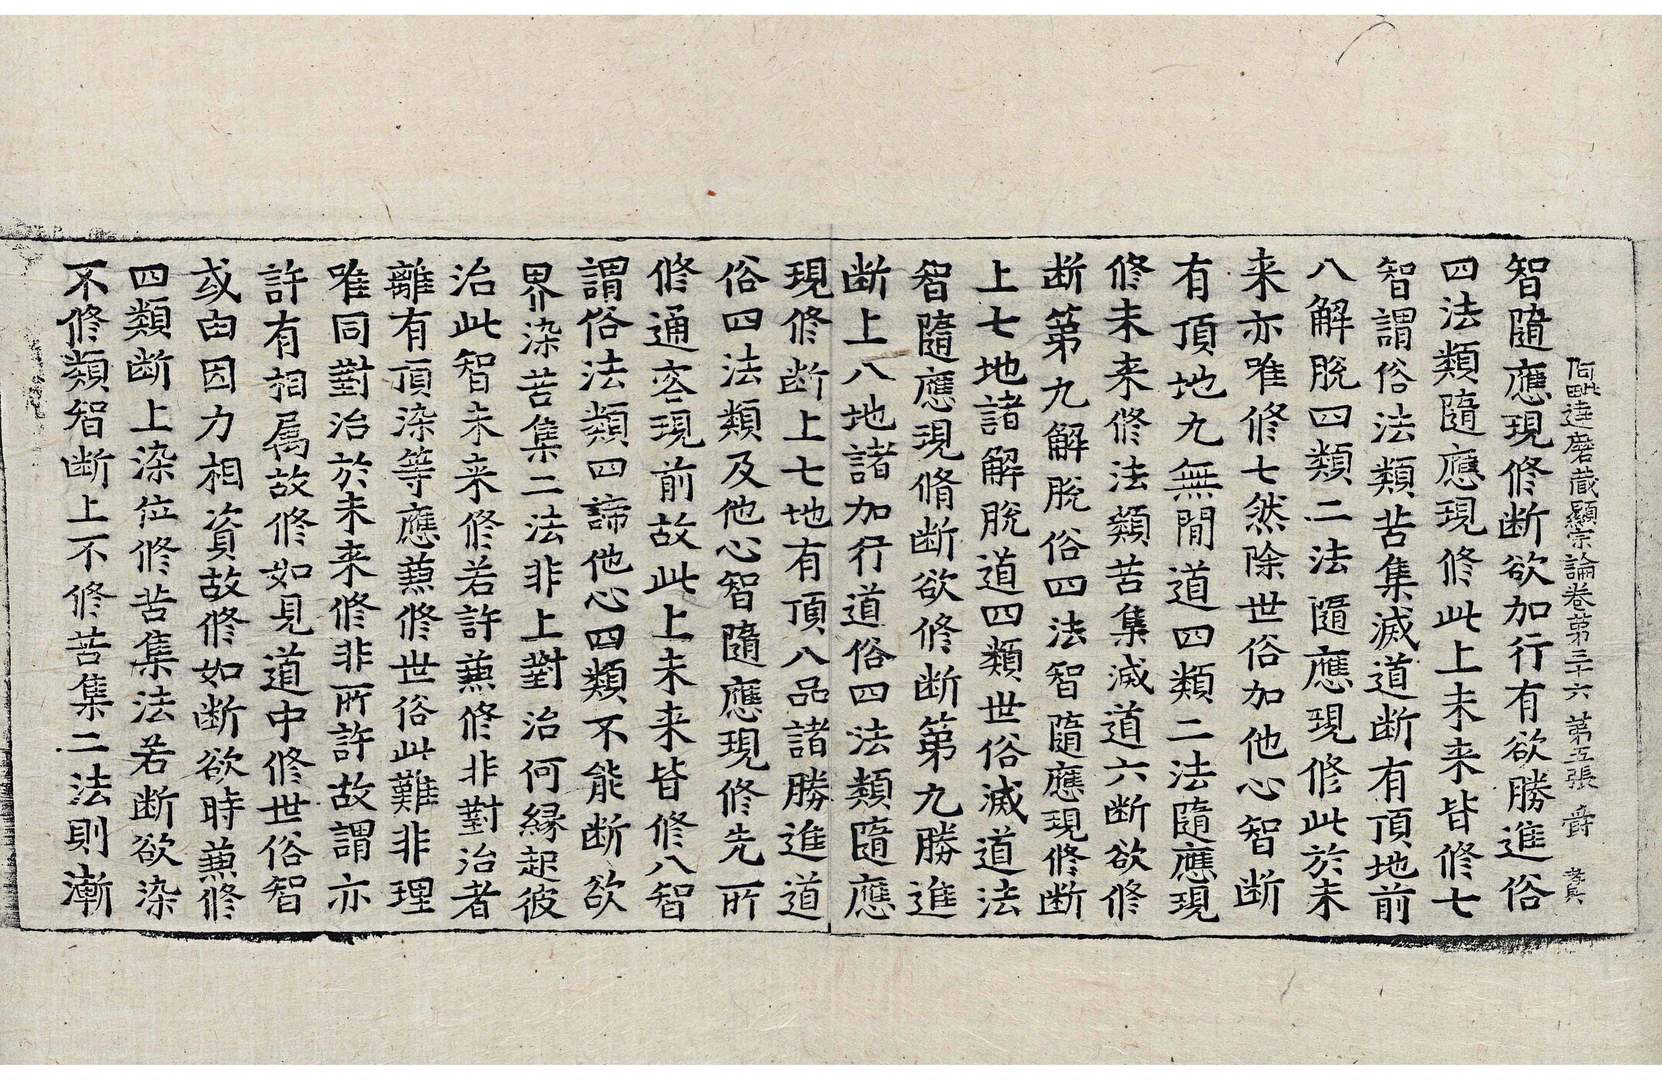 阿毗達磨藏顯宗論卷第三十六 第五張 爵
智隨應現修断欲加行有欲勝進俗
四法類隨應現修此上未来皆修七
智謂俗法類苦集滅道断有頂地前
八解脫四類二法隨應現修此於未
来亦唯修七然除世俗加他心智断
有頂地九無間道四類二法隨應現
修未来修法類苦集滅道六断欲修
断第九解脫俗四法智隨應現修断
上七地諸解脫道四類世俗滅道法
智隨應現脩断欲修断第九勝進
断上八地諸加行道俗四法類隨應
現修断上七地有頂八品諸勝進道
俗四法類及他心智隨應現修先所
修通容現前故此上未来皆修八智
謂俗法類四諦他心四類不能断欲
界染苦集二法非上對治何縁起彼
治此智未来修若許兼修非對治者
離有頂染等應兼修世俗此難非理
唯同對治於未来修非所許故謂亦
許有相属故修如見道中修世俗智
或由因力相資故修如断欲時兼修
四類断上染位修苦集法若断欲染
不修類智断上不修苦集二法則漸